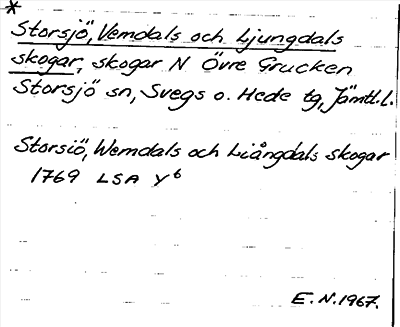 *
Storsjö, Vemdals och Ljungdals
skogar, skogar N Övre Grucken
Storsjö sn, Svegs o. Hede tg, Jämtl.l.
Storsiö, Wemdals och Liångdals skogar
1769 LSA Y6
E.N.1967.